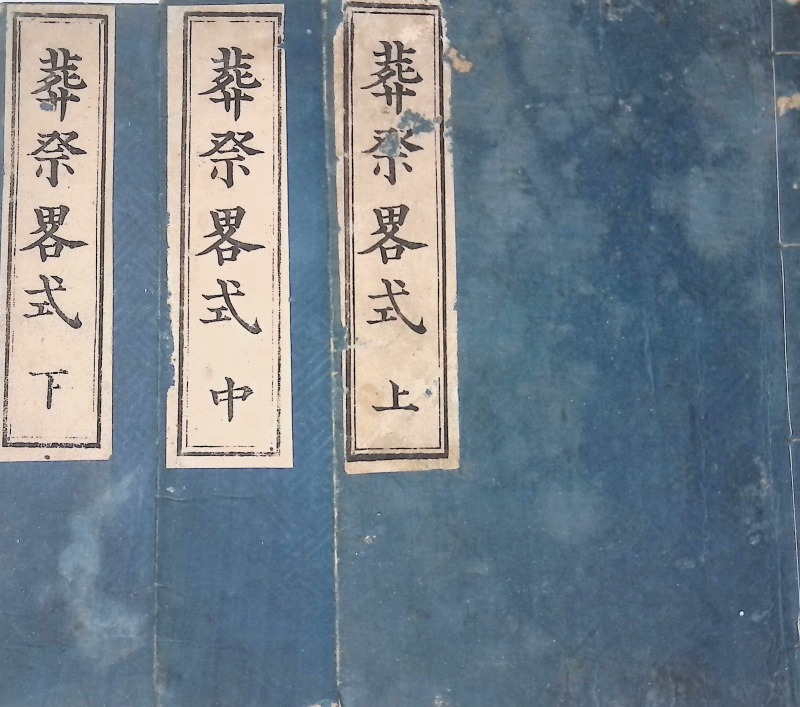 葬祭畧式 上
葬祭畧式 中
葬祭畧式 下